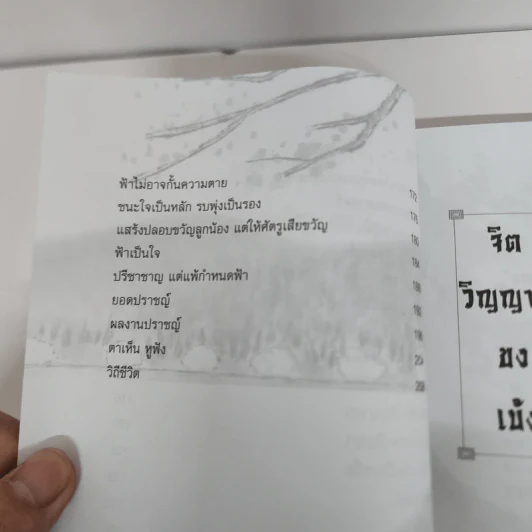 ฟ้าไม่อาจกั้นความตาย 172
ชนะใจเป็นหลัก รบพุ่งเป็นรอง 176
แสร้งปลอบขวัญลูกน้อง แต่ให้ศัตรูเสียขวัญ 180
ฟ้าเป็นใจ 184
ปรีชาชาญ แต่แพ้กำหนดฟ้า
ยอดปราชญ์
ผลงานปราชญ์
ตาเห็น หูฟัง
วิถีชีวิต
จิต